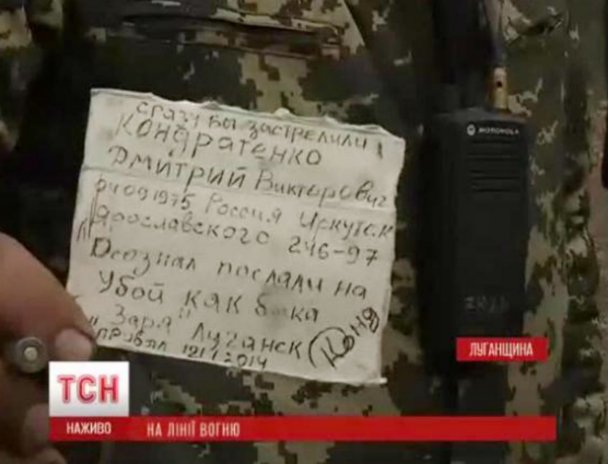 сразу бы застрелили
Кондратенко
Дмитрий Викторович
04091975 Россия Иркутск
Ярославского 246-97
Осознал послали на
Убой как быка
"Заря" Луганск (Коня)
1217 2014
MOTOROLA
ЛУГАНЩИНА
ТСН
НАЖИВО
НА ЛІНІЇ ВОГНЮ